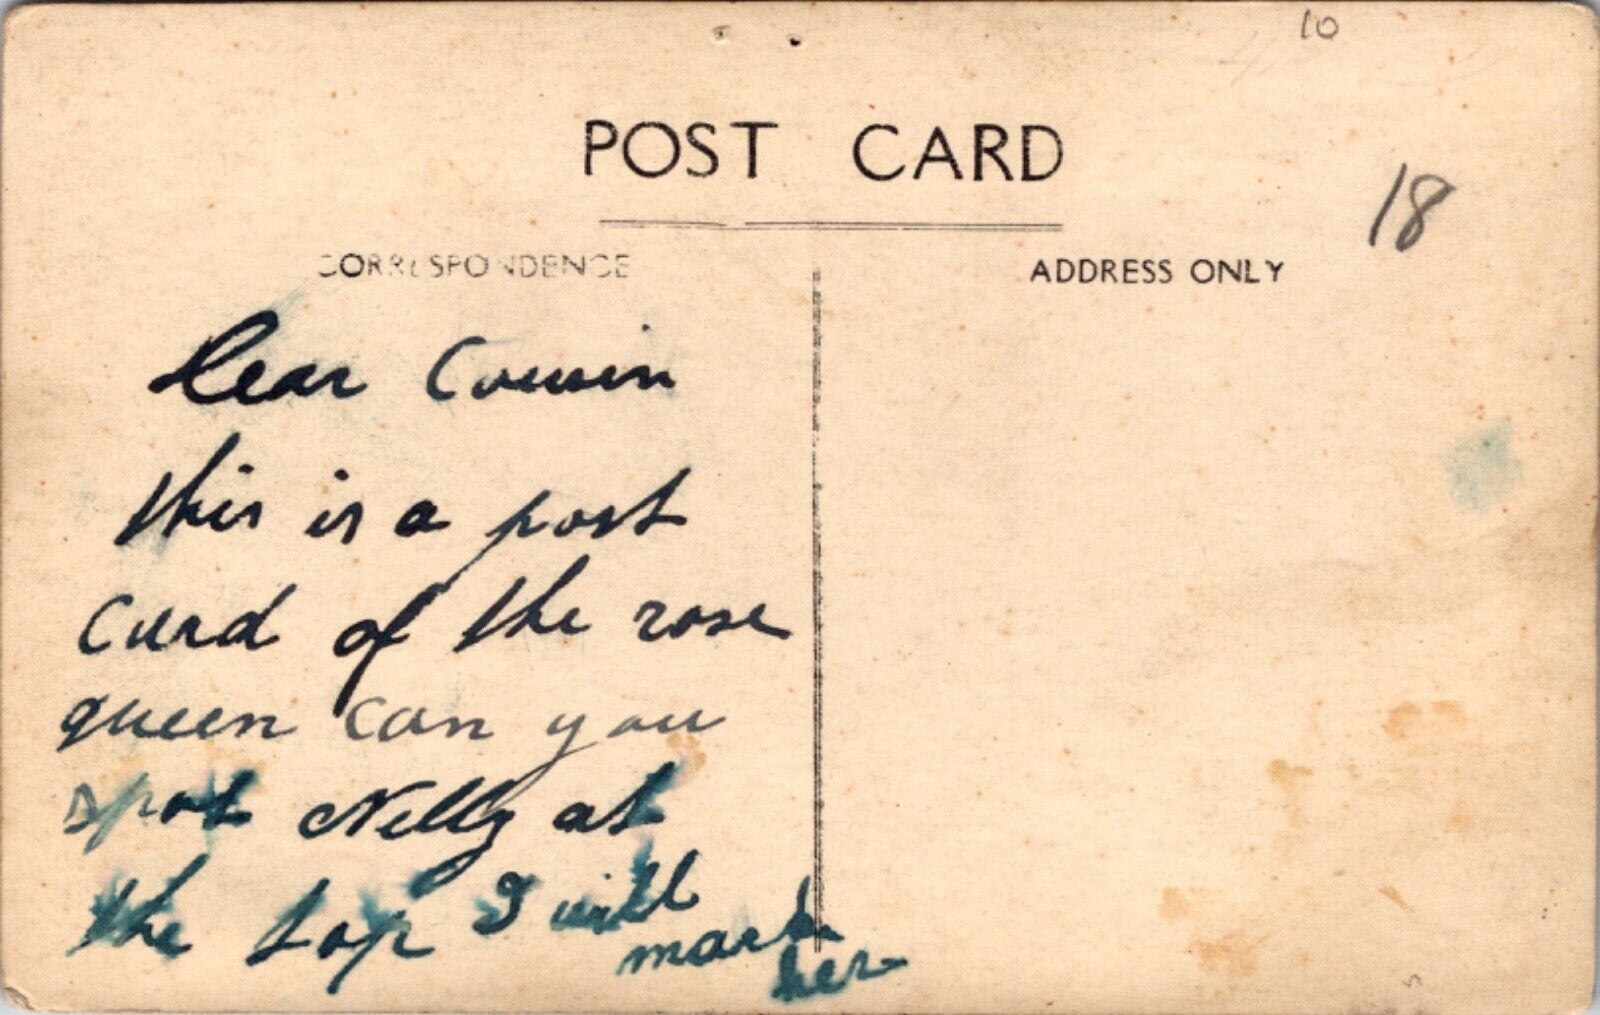 10
POST CARD
18
CORRESPONDENCE
ADDRESS ONLY
Dear Cousin
this is a post
Card of the rose
queen can you
spot Nelly at
the top I will
mark
her